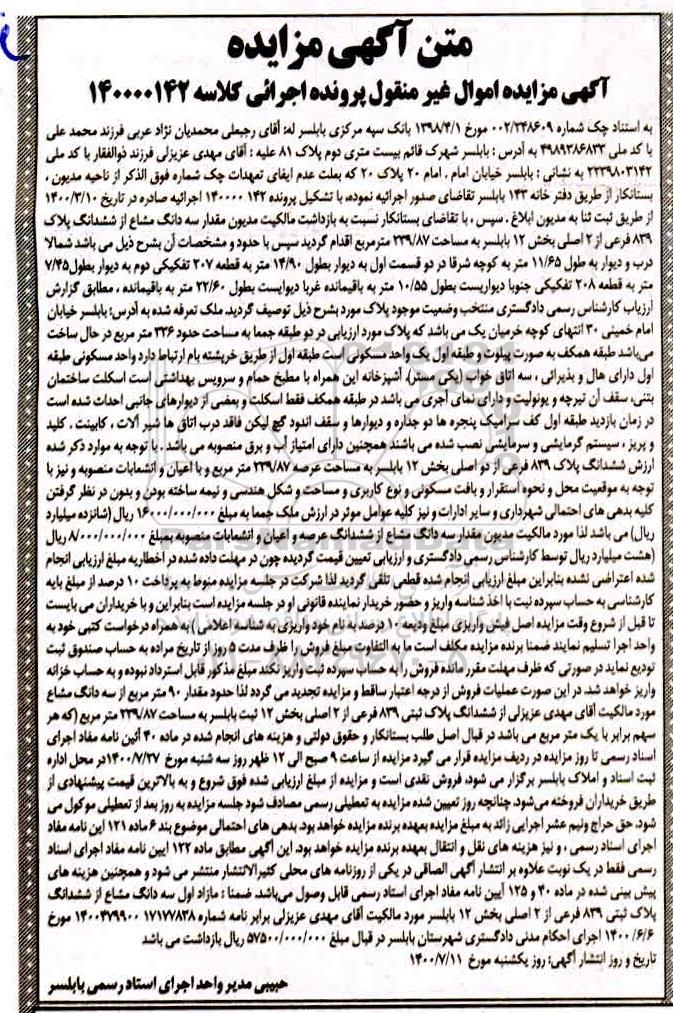 متن آگهی مزایده
آگهی مزایده اموال غیر منقول پرونده اجرائی کلاسه ۱۴۰۰۰۰۱۴۲
به استناد چک شماره ۰۰۲/۳۴۸۶۰۹ مورخ ۱۳۹۸/۴/۱ بانک سپه مرکزی بابلسر له: آقای رجبعلی محمدیان نژاد عربی فرزند محمد علی
با کد ملی ۴۹۸۹۳۸۶۸۳۳ به آدرس : بابلسر شهرک قائم بیست متری دوم پلاک ۸۱ علیه : آقای مهدی عزیزلی فرزند ذوالفقار با کد ملی
۲۲۳۹۸۰۳۱۴۲ به نشانی : بابلسر خیابان امام ، امام ۲۰ پلاک ۲۰ که بعلت عدم ایفای تعهدات چک شماره فوق الذکر از ناحیه مدیون ،
بستانکار از طریق دفتر خانه ۱۴۳ بابلسر تقاضای صدور اجرائیه نموده، با تشکیل پرونده ۱۴۲ ۱۴۰۰۰۰ اجرائیه صادره در تاریخ ۱۴۰۰/۳/۱۰
از طریق ثبت ثنا به مدیون ابلاغ . سپس ، با تقاضای بستانکار نسبت به بازداشت مالکیت مدیون مقدار سه دانگ مشاع از ششدانگ پلاک
۸۳۹ فرعی از ۲ اصلی بخش ۱۲ بابلسر به مساحت ۲۳۹/۸۷ مترمربع اقدام گردید سپس با حدود و مشخصات آن بشرح ذیل می باشد شمالا
درب و دیوار به طول ۱۱/۶۵ متر به کوچه شرقا در دو قسمت اول به دیوار بطول ۱۴/۹۰ متر به قطعه ۲۰۷ تفکیکی دوم به دیوار بطول۷/۴۵
متر به قطعه ۲۰۸ تفکیکی جنوبا دیواریست بطول ۱۰/۵۵ متر به باقیمانده غربا دیوایست بطول ۲۲/۶۰ متر به باقیمانده ، مطابق گزارش
ارزیاب کارشناس رسمی دادگستری منتخب وضعیت موجود پلاک مورد بشرح ذیل توصیف گردید. ملک تعرفه شده به آدرس: بابلسر خیابان
امام خمینی ۳۰ انتهای کوچه خرمیان یک می باشد که پلاک مورد ارزیابی در دو طبقه جمعا به مساحت حدود ۳۳۶ متر مربع در حال ساخت
می‌باشد طبقه همکف به صورت پیلوت و طبقه اول یک واحد مسکونی است طبقه اول از طریق خرپشته بام ارتباط دارد واحد مسکونی طبقه
اول دارای هال و پذیرائی ، سه اتاق خواب (یکی مستر)، آشپزخانه این همراه با مطبخ حمام و سرویس بهداشتی است اسکلت ساختمان
بتنی، سقف آن تیرچه و یونولیت و دارای نمای آجری می باشد در طبقه همکف فقط اسکلت و بعضی از دیوارهای جانبی احداث شده است
در زمان بازدید طبقه اول کف سرامیک پنجره ها دو جداره و دیوارها و سقف اندود گچ لیکن فاقد درب اتاق ها شیر آلات ، کابینت . کلید
و پریز ، سیستم گرمایشی و سرمایشی نصب شده می باشند همچنین دارای امتیاز آب و برق منصوبه می باشد . با توجه به موارد ذکر شده
ارزش ششدانگ پلاک ۸۳۹ فرعی از دو اصلی بخش ۱۲ بابلسر به مساحت عرصه ۲۳۹/۸۷ متر مربع و با اعیان و انشعابات منصوبه و نیز با
توجه به موقعیت محل و نحوه استقرار و بافت مسکونی و نوع کاربری و مساحت و شکل هندسی و نیمه ساخته بودن و بدون در نظر گرفتن
کلیه بدهی های احتمالی شهرداری و سایر ادارات و نیز کلیه عوامل موثر در ارزش ملک جمعا به مبلغ ۱۶۰۰۰/۰۰۰/۰۰۰ ریال (شانزده میلیارد
ریال) می باشد لذا مورد مالکیت مدیون مقدار سه دانگ مشاع از ششدانگ عرصه و اعیان و انشعابات منصوبه بمبلغ ۸/۰۰۰/۰۰۰/۰۰۰ ریال
(هشت میلیارد ریال توسط کارشناس رسمی دادگستری و ارزیابی تعیین قیمت گردیده چون در مهلت داده شده در اخطاریه مبلغ ارزیابی انجام
شده اعتراضی نشده بنابراین مبلغ ارزیابی انجام شده قطعی تلقی گردید لذا شرکت در جلسه مزایده منوط به پرداخت ۱۰ درصد از مبلغ پایه
کارشناسی به حساب سپرده ثبت با اخذ شناسه واریز و حضور خریدار نماینده قانونی او در جلسه مزایده است بنابراین و با خریداران می بایست
تا قبل از شروع وقت مزایده اصل فیش واریزی مبلغ ودیعه ۱۰ درصد به نام خود واریزی به شناسه اعلامی ) به همراه درخواست کتبی خود به
واحد اجرا تسلیم نمایند ضمنا برنده مزایده مکلف است ما به التفاوت مبلغ فروش را ظرف مدت ۵ روز از تاریخ مزایده به حساب صندوق ثبت
تودیع نماید در صورتی که ظرف مهلت مقرر مانده فروش را به حساب سپرده ثبت واریز نکند مبلغ مذکور قابل استرداد نبوده و به حساب خزانه
واریز خواهد شد، در این صورت عملیات فروش از درجه اعتبار ساقط و مزایده تجدید می گردد لذا حدود مقدار ۹۰ متر مربع از سه دانگ مشاع
مورد مالکیت آقای مهدی عزیزلی از ششدانگ پلاک ثبتی ۸۳۹ فرعی از ۲ اصلی بخش ۱۲ ثبت بابلسر به مساحت ۲۳۹/۸۷ متر مربع (که هر
سهم برابر با یک متر مربع می باشد در قبال اصل طلب بستانکار و حقوق دولتی و هزینه های انجام شده در ماده ۴۰ آئین نامه مفاد اجرای
اسناد رسمی تا روز مزایده در ردیف مزایده قرار می گیرد مزایده از ساعت ۹ صبح الی ۱۲ ظهر روز سه شنبه مورخ ۱۴۰۰/۷/۲۷در محل اداره
ثبت اسناد و املاک بابلسر برگزار می شود، فروش نقدی است و مزایده از مبلغ ارزیابی شده فوق شروع و به بالاترین قیمت پیشنهادی از
طریق خریداران فروخته می‌شود، چنانچه روز تعیین شده مزایده به تعطیلی رسمی مصادف شود جلسه مزایده به روز بعد از تعطیلی موکول می
شود. حق حراج ونیم عشر اجرایی زائد به مبلغ مزایده بعهده برنده مزایده خواهد بود. بدهی های احتمالی موضوع بند ۶ ماده ۱۲۱ این نامه مفاد
اجرای اسناد رسمی ، و نیز هزینه های نقل و انتقال بعهده برنده مزایده خواهد بود. این آگهی مطابق ماده ۱۲۲ ایین نامه مفاد اجرای اسناد
رسمی فقط در یک نوبت علاوه بر انتشار آگهی الصاقی در یکی از روزنامه های محلی کثیرالانتشار منتشر می شود و همچنین هزینه های
پیش بینی شده در ماده ۴۰ و ۱۲۵ آیین نامه مفاد اجرای اسناد رسمی قابل وصول می‌باشد. ضمنا : مازاد اول سه دانگ مشاع از ششدانگ
پلاک ثبتی ۸۳۹ فرعی از ۲ اصلی بخش ۱۲ بابلسر مورد مالکیت آقای مهدی عزیزلی برابر نامه شماره ۱۷۱۷۷۸۳۸ ۱۴۰۰۴۷۹۹۰۰ مورخ
۱۴۰۰/۶/۶ اجرای احکام مدنی دادگستری شهرستان بابلسر در قبال مبلغ ۵۷۵۰۰/۰۰۰/۰۰۰ ریال بازداشت می باشد
تاریخ و روز انتشار آگهی: روز یکشنبه مورخ ۱۴۰۰/۷/۱۱
حبیبی مدیر واحد اجرای اسناد رسمی بابلسر